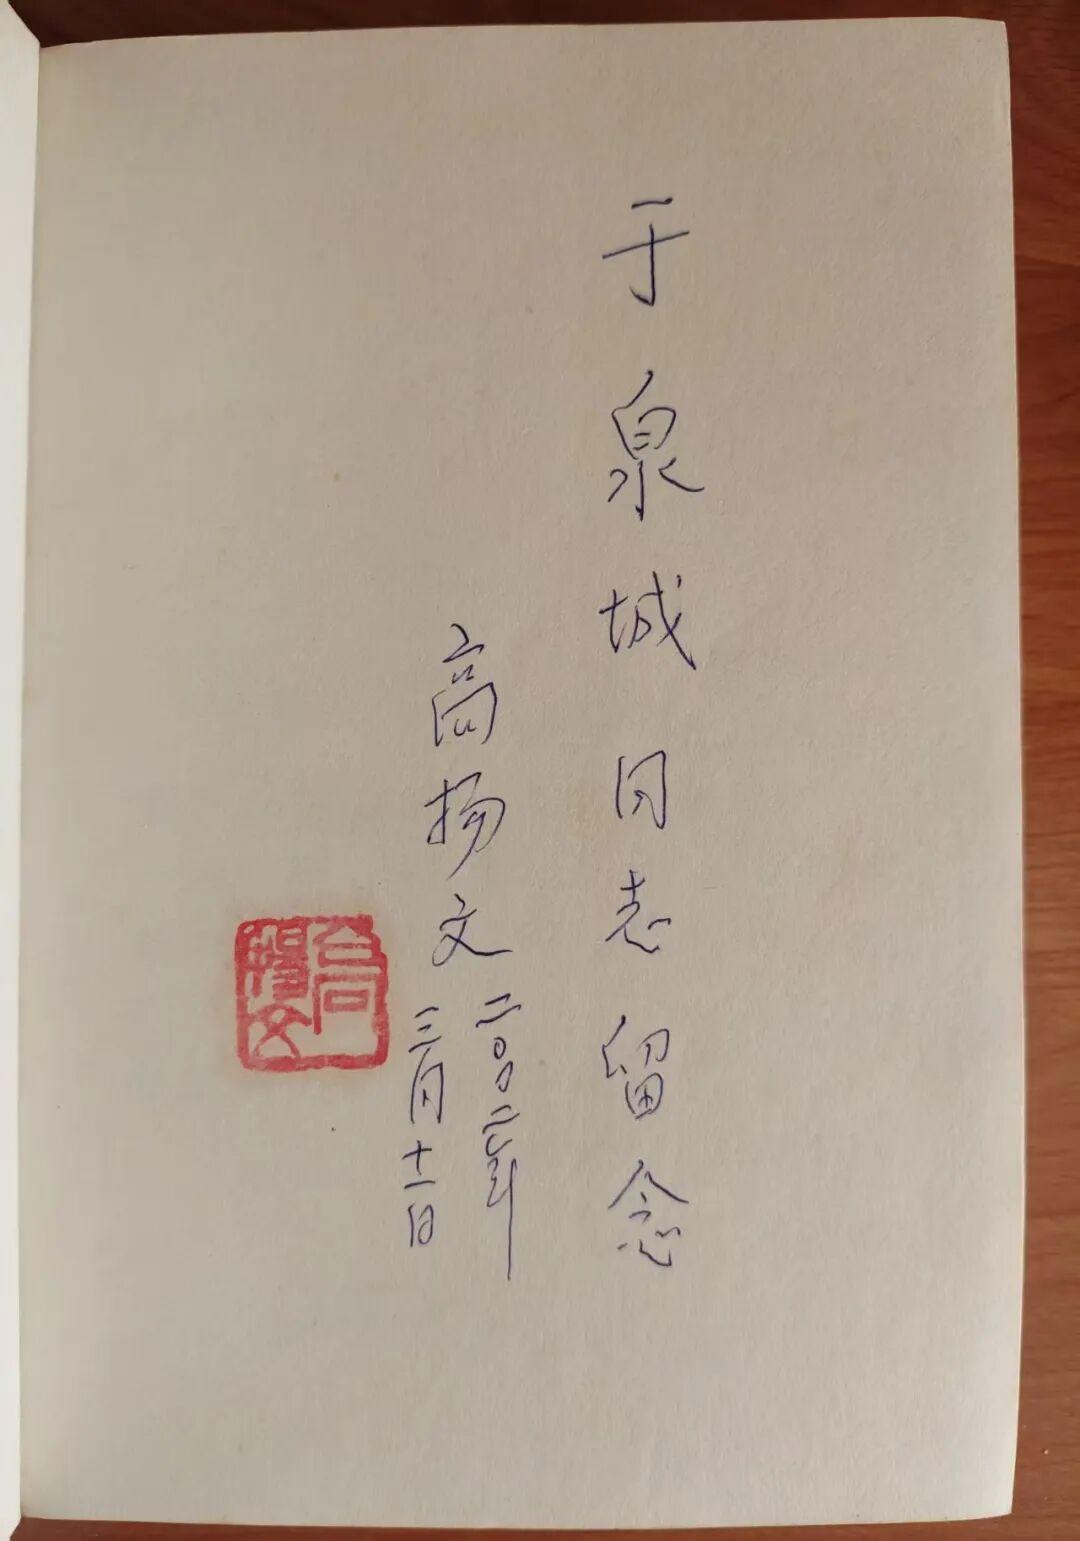 于泉城同志留念
高扬文
二〇〇二年
三月十一日
高揚文